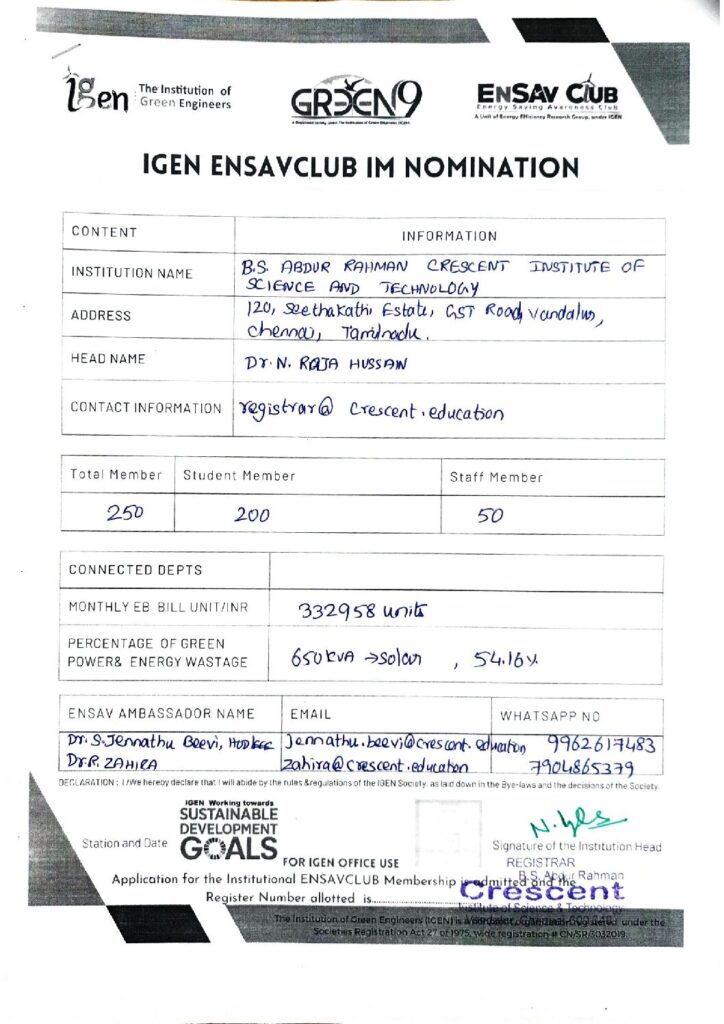 igen The Institution of
Green Engineers
GREEN9
A Registered society under The Institution of Green Engineers (IGEN)
ENSAV CLUB
Energy Saving Awareness Club
A Unit of Energy Efficiency Research Group, under IGEN
IGEN ENSAVCLUB IM NOMINATION
CONTENT INFORMATION
INSTITUTION NAME B.S. ABDUR RAHMAN CRESCENT INSTITUTE OF
SCIENCE AND TECHNOLOGY
ADDRESS 120, Seethakathi Estate, GST Road, Vandalur,
Chennai, Tamilnadu.
HEAD NAME Dr. N. RAJA HUSSAIN
CONTACT INFORMATION registrar@crescent.education
Total Member Student Member Staff Member
250 200 50
CONNECTED DEPTS
MONTHLY EB BILL UNIT/INR 332958 units
PERCENTAGE OF GREEN
POWER& ENERGY WASTAGE 650 kVA → solar , 54.16%
ENSAV AMBASSADOR NAME EMAIL WHATSAPP NO
Dr. S. Jennathu Beevi, HOD/EEE jennathu.beevi@crescent.education 9962617483
Dr. R. ZAHIRA zahira@crescent.education 7904865379
DECLARATION : I/We hereby declare that I will abide by the rules &regulations of the IGEN Society, as laid down in the Bye-laws and the decisions of the Society.
IGEN Working towards
SUSTAINABLE
DEVELOPMENT
GOALS
Station and Date
Signature of the Institution Head
REGISTRAR
FOR IGEN OFFICE USE
B.S. Abdur Rahman
Application for the Institutional ENSAVCLUB Membership is admitted and the
Crescent
Register Number allotted is
Institute of Science & Technology
The Institution of Green Engineers (IGEN) is a registered under the
Societies Registration Act 27 of 1975, wide registration # CN/SR/3032019.